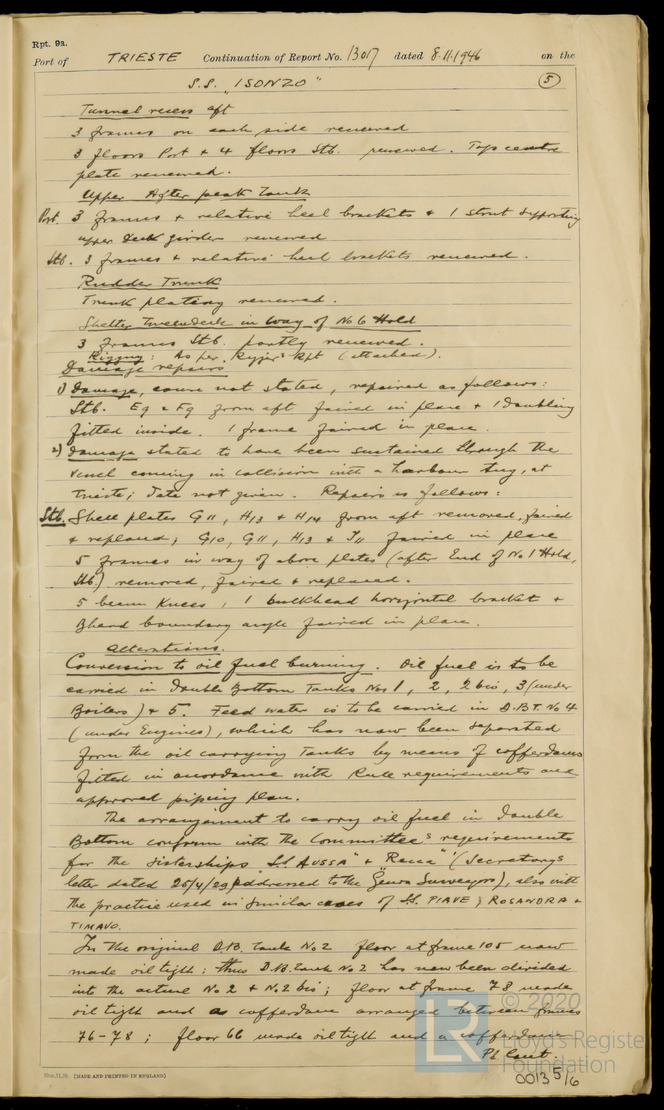 Rpt. 9a.
Port of TRIESTE Continuation of Report No. 13017 dated 8.11.1946 on the
S.S. "ISONZO" 5
Tunnel recess aft
3 frames on each side renewed
3 floors Port & 4 floors Stb. renewed. Top centre
plate renewed.
Upper After peak Tank
Port. 3 frames & relative heel brackets & 1 strut supporting
upper deck girder renewed
Stb. 3 frames & relative heel brackets renewed.
Rudder Trunk
Trunk plating renewed.
Shelter Tweendeck in way of No 6 Hold
3 frames Stb. partly renewed.
Rigging: As per Rigger's Rpt (attached).
Damage repairs
1) Damage, cause not stated, repaired as follows:
Stb. E9 & F9 from aft faired in place & 1 doubling
fitted inside. 1 frame faired in place.
2) Damage stated to have been sustained through the
vessel coming in collision with a harbour tug, at
Trieste; date not given. Repairs as follows:
Stb. Shell plates G11, H13 & H14 from aft removed, faired
& replaced; G10, G11, H13 & J11 faired in place
5 frames in way of above plates (after End of No 1 Hold,
Stb.) removed, faired & replaced.
5 beam knees, 1 bulkhead horizontal bracket &
Bhead boundary angle faired in place.
Alterations.
Conversion to oil fuel burning. Oil fuel is to be
carried in Double Bottom Tanks Nos 1, 2, 2 bis, 3 (under
Boilers) & 5. Feed water is to be carried in D.B.T. No 4
(under Engines), which has now been separated
from the oil carrying Tanks by means of cofferdams
fitted in accordance with Rule requirements and
approved piping plan.
The arrangement to carry oil fuel in Double
Bottom conform with the Committee's requirements
for the sisterships "S.S. AUSSA" & "Recca" (Secretary's
letter dated 25/4/29 addressed to the Genoa Surveyors), also with
the practice used in similar cases of S.S. PIAVE, ROSANDRA &
TIMAVO.
In the original D.B. tank No 2 floor at frame 105 now
made oil tight: thus D.B. tank No 2 has now been divided
into the actual No 2 & No 2 bis; floor at frame 78 made
oil tight and a cofferdam arranged between frames
76-78; floor 66 made oil tight and a cofferdam
Pl Cont.
(MADE AND PRINTED IN ENGLAND)
0013 5/6
LR
© 2020
Lloyd's Register
Foundation